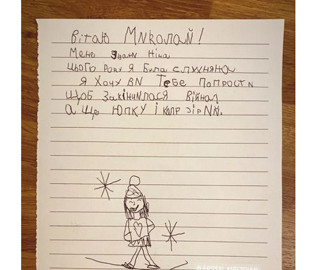 Вітаю Миколай!
Мене звати Ніна
Цього року я була слухняна
Я хочу в Тебе попросити
щоб закінчилася війна
а ще юпку і